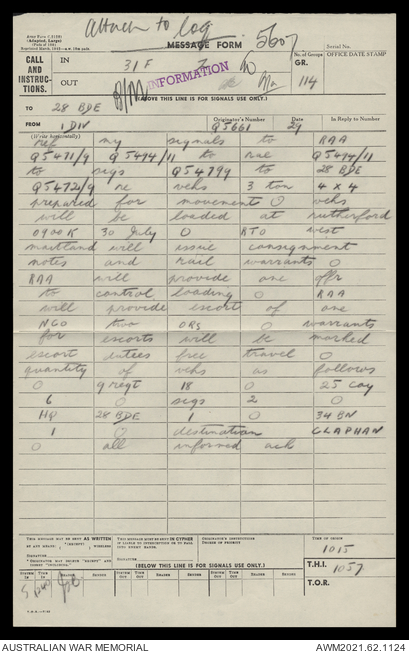 Attach to log
Army Form C.2128
(Adapted, Large)
(Pads of 100)
MESSAGE FORM
5607
Serial No.
CALL AND INSTRUC-TIONS.
IN
31 F
INFORMATION
No. of Groups
GR.
114
OFFICE DATE STAMP
OUT
(ABOVE THIS LINE IS FOR SIGNALS USE ONLY.)
TO 28 BDE
FROM 1 DIV
Originator's Number
Q5661
Date
29
In Reply to Number
(Write horizontally)
ref my signals to RAA
Q5471/9 Q5494/11 to rae Q5494/11
to sigs Q5479 to 28 BDE
Q5472/9 re vehs 3 ton 4 x 4
prepared for movements O vehs
will be loaded at rutherford
0900K 30 July O RTO west
maitland will issue consignment
notes and rail warrants O
RAA will provide one offr
to control loading O RAA
will provide escort of one
NCO two ORS O warrants
for escorts will be marked
escort duties free travel O
quantity of vehs as follows
O 9 regt 18 O 25 coy
6 O sigs 2 O
HQ 28 BDE 1 O 34 BN
1 O destination CLAPHAM
O all informed ack
THIS MESSAGE MAY BE SENT AS WRITTEN BY ANY MEANS.
(EXCEPT) WIRELESS
THIS MESSAGE MUST BE SENT IN CYPHER IF LIABLE TO INTERCEPTION OR TO FALL INTO ENEMY HANDS.
ORIGINATOR'S INSTRUCTIONS
DEGREE OF PRIORITY
TIME OF ORIGIN
1015
(BELOW THIS LINE IS FOR SIGNALS USE ONLY.)
T.H.I. 1057
SYSTEM IN
TIME IN
READER
SENDER
SYSTEM OUT
TIME OUT
READER
SENDER
SYSTEM OUT
TIME OUT
READER
SENDER
T.O.R.
AUSTRALIAN WAR MEMORIAL
AWM2021.62.1124